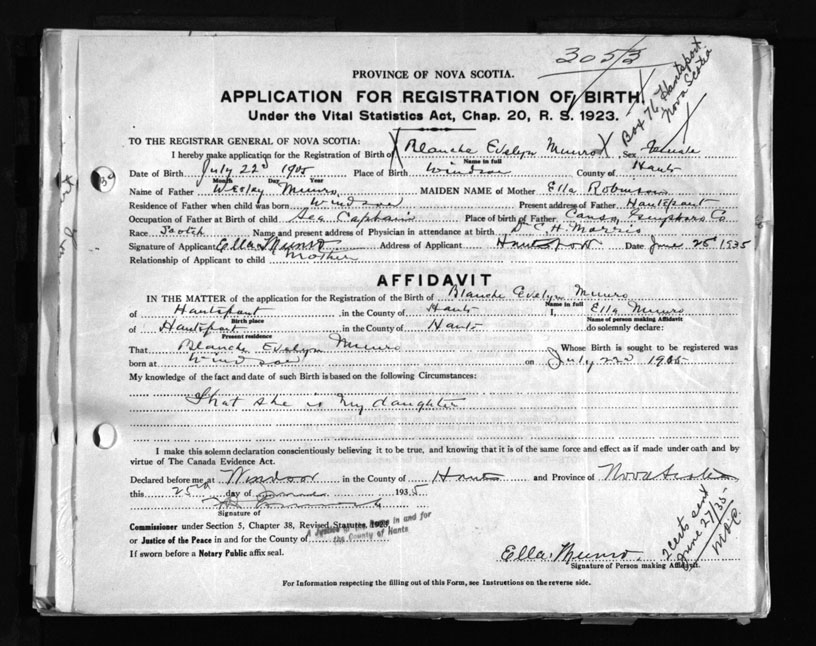 3053
Box 76 Hantsport
Nova Scotia
PROVINCE OF NOVA SCOTIA.
APPLICATION FOR REGISTRATION OF BIRTH.
Under the Vital Statistics Act, Chap. 20, R. S. 1923.
TO THE REGISTRAR GENERAL OF NOVA SCOTIA:
I hereby make application for the Registration of Birth of Blanche Evelyn Munro Sex Female
Name in full
Date of Birth July 22nd 1905 Place of Birth Windsor County of Hants
Month Day Year
Name of Father Wesley Munro MAIDEN NAME of Mother Ella Robinson
Residence of Father when child was born Windsor Present address of Father Hantsport
Occupation of Father at Birth of child Sea Captain Place of birth of Father Canso Guysboro Co
Race Scotch Name and present address of Physician in attendance at birth Dr C. H. Morris
Signature of Applicant Ella Munro Address of Applicant Hantsport Date June 25 1935
Relationship of Applicant to child Mother
AFFIDAVIT
IN THE MATTER of the application for the Registration of the Birth of Blanche Evelyn Munro
Name in full
of Hantsport in the County of Hants I, Ella Munro
Birth place Name of person making Affidavit
of Hantsport in the County of Hants do solemnly declare:
Present residence
That Blanche Evelyn Munro Whose Birth is sought to be registered was
born at Windsor on July 22nd 1905
My knowledge of the fact and date of such Birth is based on the following Circumstances:
That she is my daughter
I make this solemn declaration conscientiously believing it to be true, and knowing that it is of the same force and effect as if made under oath and by
virtue of The Canada Evidence Act.
Declared before me at Windsor in the County of Hants and Province of Nova Scotia
this 25th day of 1935
Signature of
Commissioner under Section 5, Chapter 38, Revised Statutes, 1923
or Justice of the Peace in and for the County of
A Justice of the Peace in and for
the County of Hants
If sworn before a Notary Public affix seal.
Ella Munro
Signature of Person making Affidavit.
2 certs sent
June 27/35
For Information respecting the filling out of this Form, see Instructions on the reverse side.